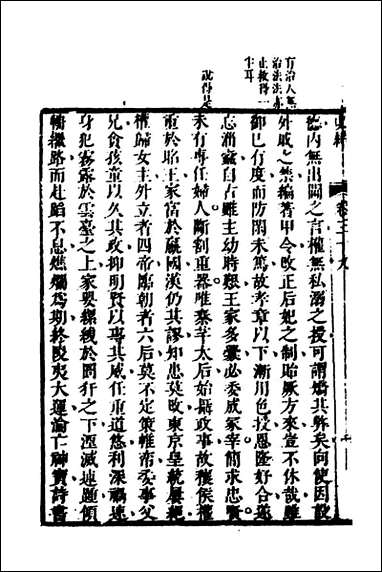 史緯
卷三十九
有治人無
治法法亦
止救得一
半耳
說得是
德內無出閫之言權無私溺之授可謂矯其弊矣向使因設
外戚之禁編著甲令改正后妃之制貽厥方來豈不休哉雖
御己有度而防閑未篤故孝章以下漸用色授恩隆好合遂
忘淄蠹自古雖主幼時艱王家多釁必委成冢宰簡求忠賢
未有專任婦人斷割重器唯秦芈太后始攝政事故穰侯權
重於昭王家富於嬴國漢仍其謬知患莫改東京皇統屢絕
權歸女主外立者四帝臨朝者六后莫不定策帷帟委事父
兄貪孩童以久其政抑明賢以專其威任重道悠利深禍速
身犯霧露於雲臺之上家嬰縲紲於圄犴之下湮滅連踵傾
輈繼路而赴蹈不息燋爛爲期終陵夷大運淪亡神寶詩書